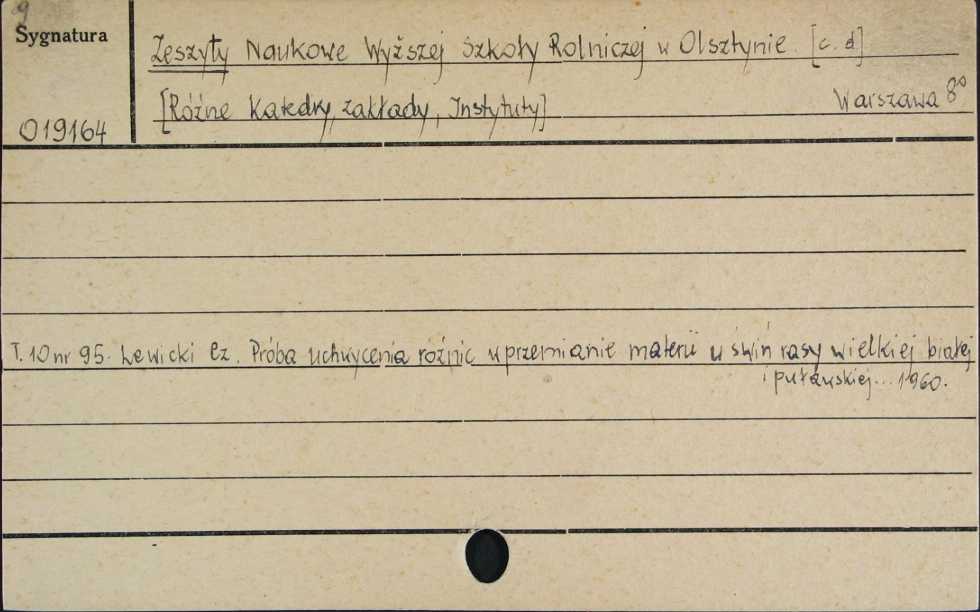 9
Sygnatura
Zeszyty Naukowe Wyższej Szkoły Rolniczej w Olsztynie. [c. d]
[Różne Katedry, zakłady, Instytuty] Warszawa 8°
019164
T. 10 nr 95. Lewicki Cz. Próba uchwycenia różnic w przemianie materii u świń rasy wielkiej białej
i puławskiej... 1960.